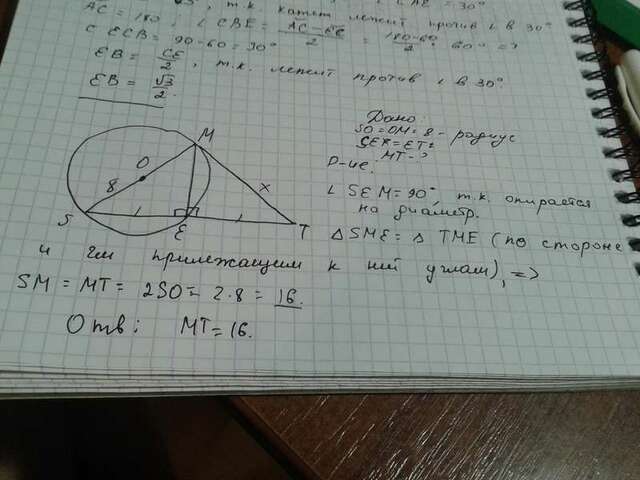 т.к. катет лежит против ∠ в 30°
AC = 180°, ∠ CBE = (AC - EC)/2 = (180-60)/2 = 60° =>
∠ ECB = 90-60 = 30°
EB = CE/2, т.к. лежит против ∠ в 30°
EB = √3/2.
M
O
8
x
S
E
T
Дано:
SO = OM = 8 - радиус
SE = ET =
MT - ?
Р-ие:
∠ SEM = 90°, т.к. опирается
на диаметр.
Δ SME = Δ TME (по стороне
и 2м прилежащим к ней углам), =>
SM = MT = 2SO = 2·8 = 16.
Отв: MT = 16.